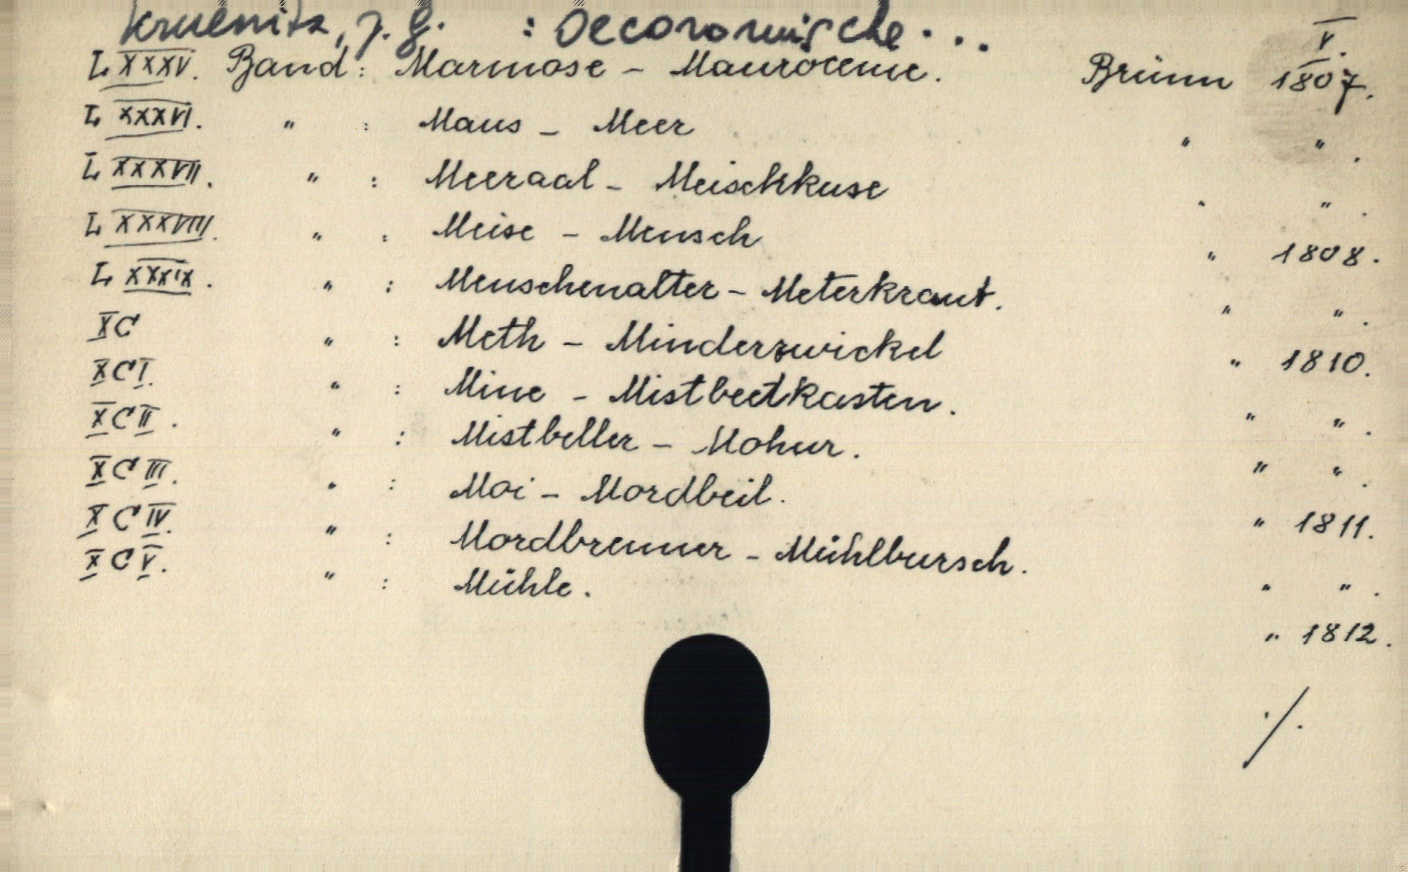 Kruenitz, J. G. : Oeconomische... V.
LXXXV. Band : Marmose - Maurocenie. Brünn 1807.
LXXXVI. " : Maus - Meer " " .
LXXXVII. " : Meeraal - Meischkuse " " .
LXXXVIII. " : Meise - Mensch " 1808.
LXXXIX. " : Menschenalter - Meterkraut. " " .
XC " : Meth - Minderzwickel " 1810.
XCI. " : Mine - Mistbeetkasten. " " .
XCII. " : Mistbeller - Mohur. " " .
XCIII. " : Moi - Mordbeil. " 1811.
XCIV. " : Mordbrenner - Mühlbursch. " " .
XCV. " : Mühle. " 1812.
./.